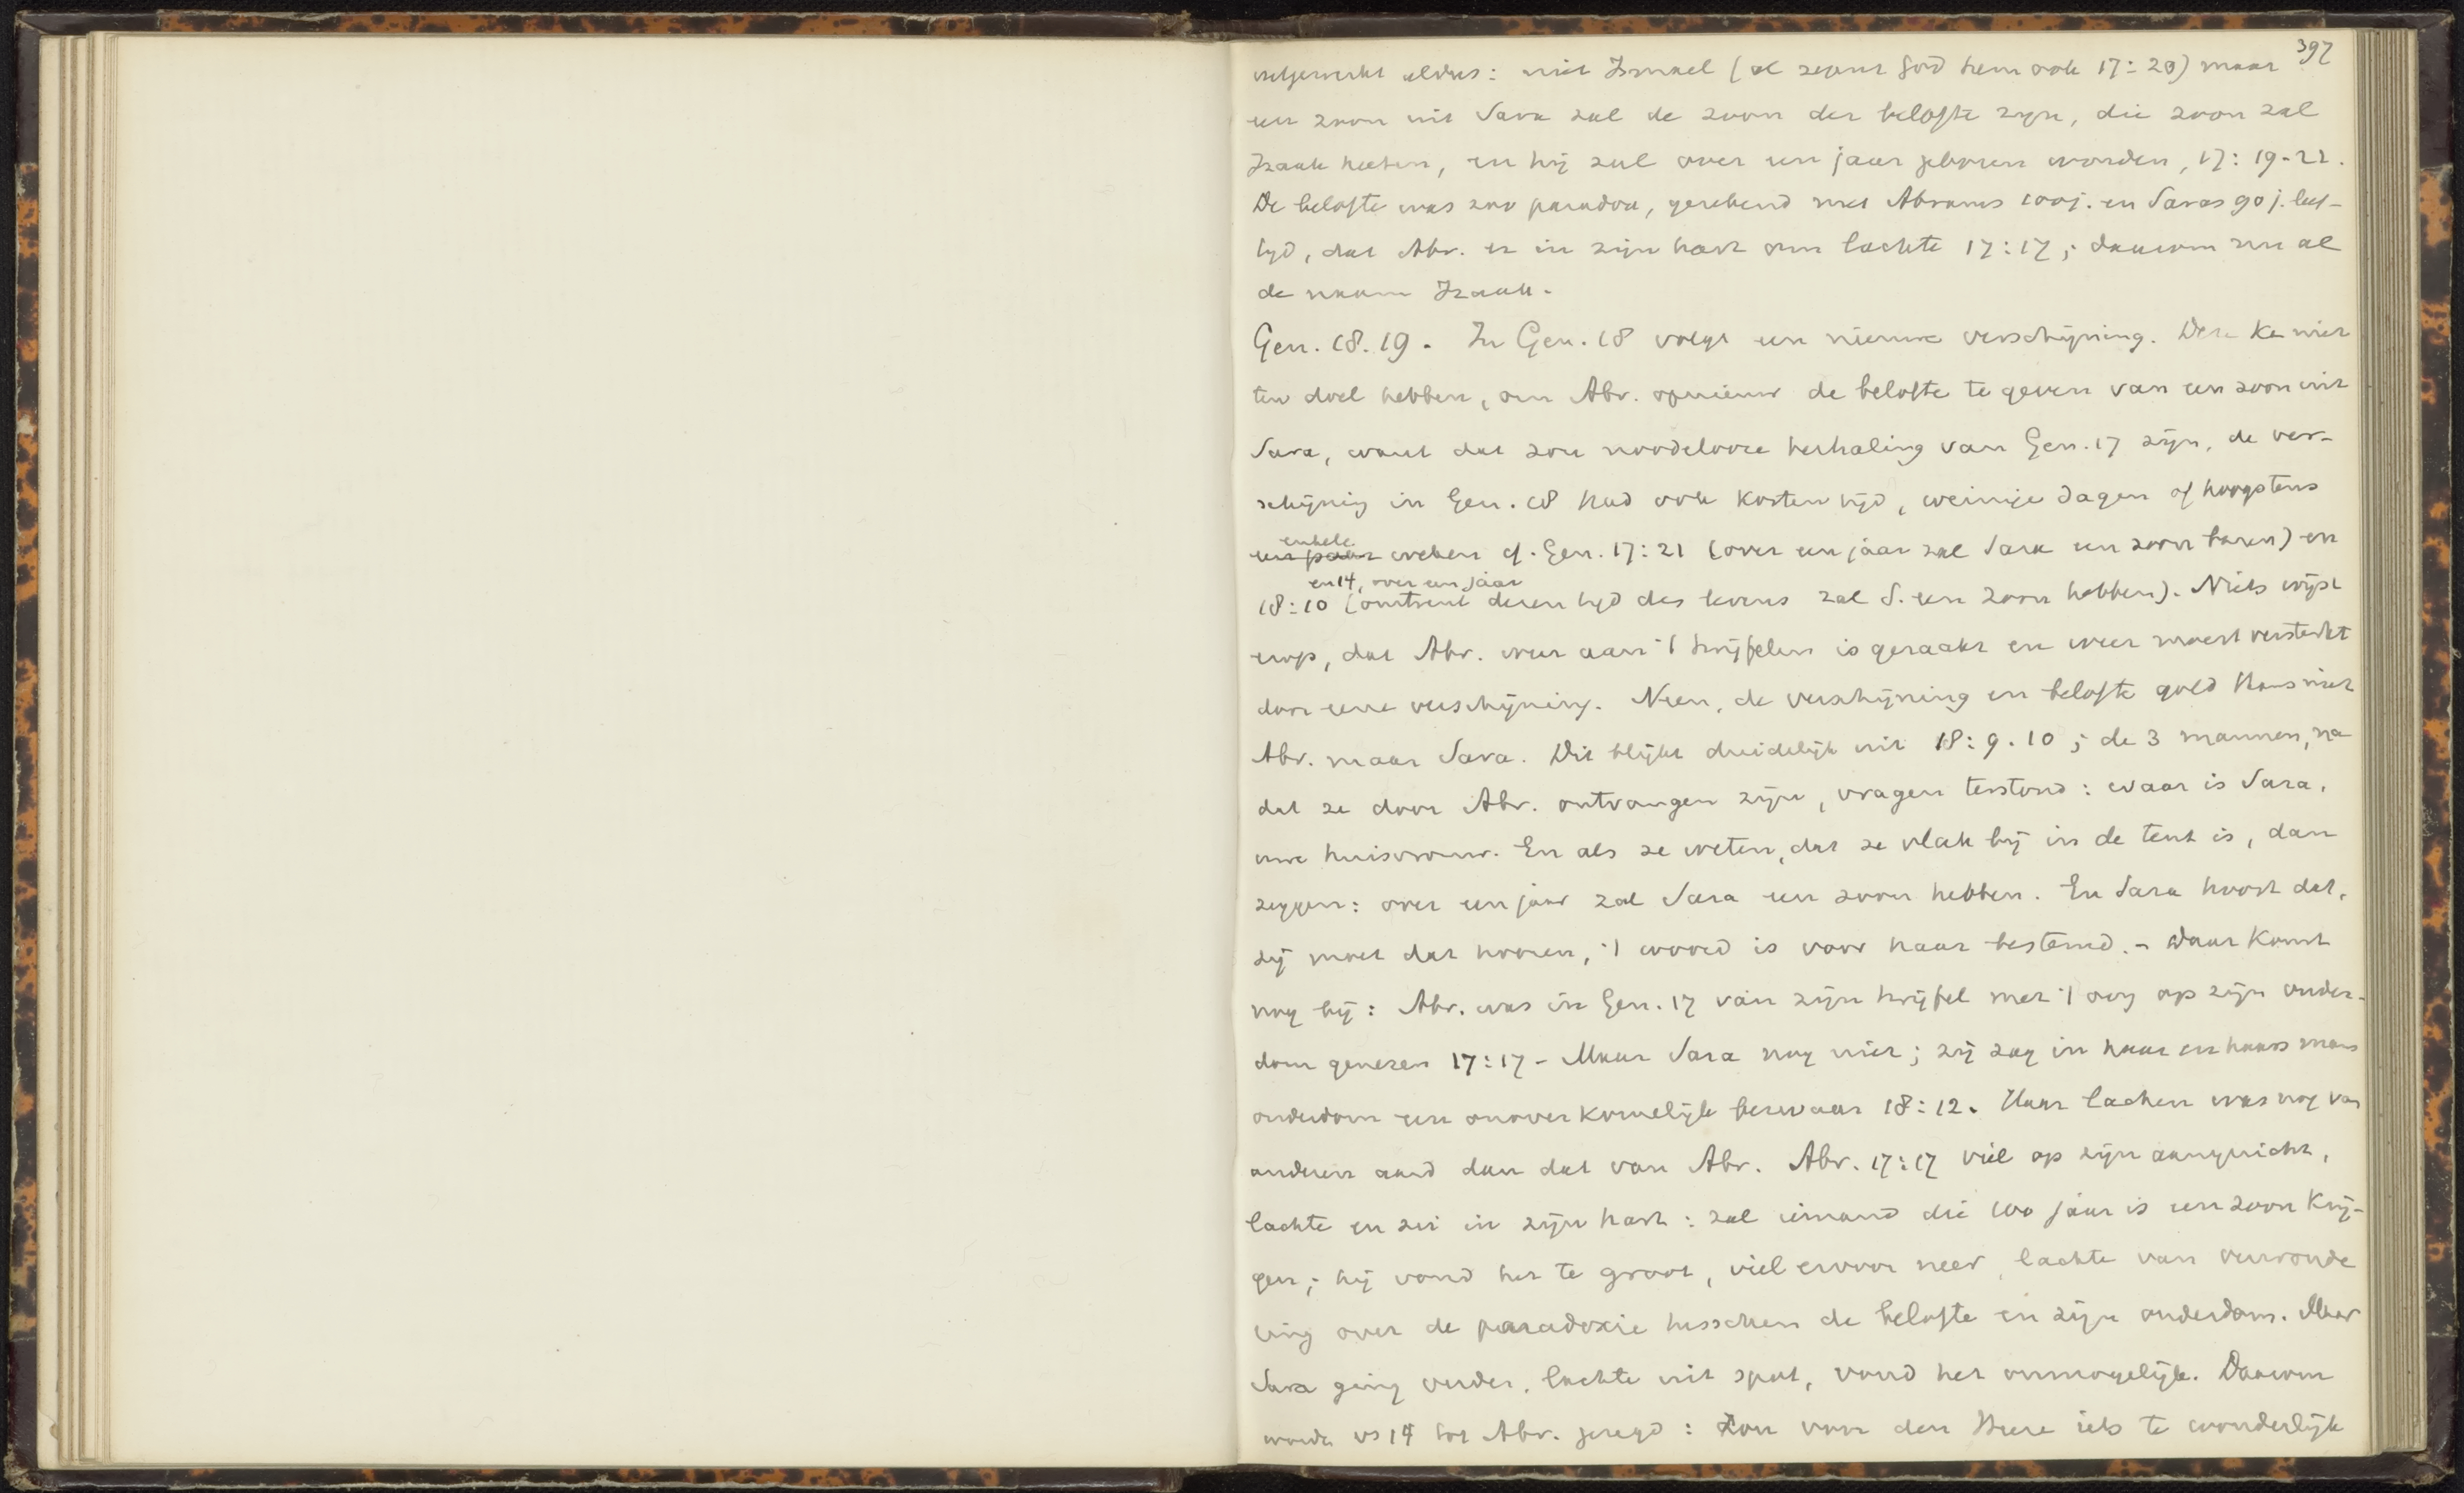 397
uitgewerkt aldus: niet Ismael (al zegent God hem ook 17:20) maar
een zoon uit Sara zal de zoon der belofte zijn, die zoon zal
Izaak heeten, en hij zal over een jaar geboren worden, 17:19-21.
De belofte was zoo paradox, gerekend met Abrams 100 j. en Saras 90 j. leef-
tijd, dat Abr. er in zijn hart om lachte 17:17; daarom nu al
de naam Izaak.
Gen. 18.19. In Gen. 18 volgt een nieuwe verschijning. Deze ka niet
ten doel hebben, om Abr. opnieuw de belofte te geven van een zoon uit
Sara, want dat zou noodelooze herhaling van Gen. 17 zijn, de ver-
schijning in Gen. 18 had ook korten tijd, weinige dagen of hoogstens
enkele
een paar weken cf. Gen. 17:21 (over een jaar zal Sara een zoon baren) en
en 14, over een jaar
18:10 (omtrent dezen tijd des levens zal S. een zoon hebben). Niets wijst
erop, dat Abr. weer aan 't twijfelen is geraakt en weer moest versterkt
door eene verschijning. Neen, de verschijning en belofte gold thans niet
Abr. maar Sara. Dit blijkt duidelijk uit 18:9.10; de 3 mannen, na
dat ze door Abr. ontvangen zijn, vragen terstond: waar is Sara,
uwe huisvrouw. En als ze weten, dat ze vlak bij in de tent is, dan
zeggen: over een jaar zal Sara een zoon hebben. En Sara hoort dat,
zij moet dat hooren, 't woord is voor haar bestemd. - Daar komt
nog bij: Abr. was in Gen. 17 van zijn twijfel met 't oog op zijn ouder-
dom genezen 17:17 - Maar Sara nog niet; zij zag in haar en haars mans
ouderdom een onoverkomelijk bezwaar 18:12. Haar lachen was nog van
anderen aard dan dat van Abr. Abr. 17:17 viel op zijn aangezicht,
lachte en zei in zijn hart: zal iemand die 100 jaar is een zoon krij-
gen; hij vond het te groot, viel ervoor neer, lachte van verwonde
ring over de paradoxie tusschen de belofte en zijn ouderdom. Maar
Sara ging verder, lachte uit spot, vond het onmogelijk. Daarom
wordt vs 14 tot Abr. gezegd: Zou voor den Heere iets te wonderlijk